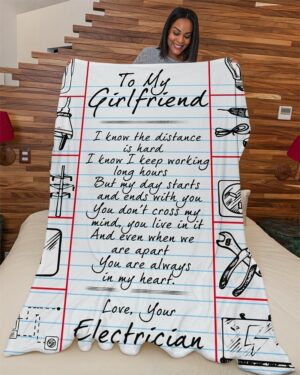 To My
Girlfriend
I know the distance
is hard
I know I keep working
long hours
But my day starts
and ends with you
You don't cross my
mind, you live in it
And even when we
are apart
You are always
in my heart.
Love, Your
Electrician